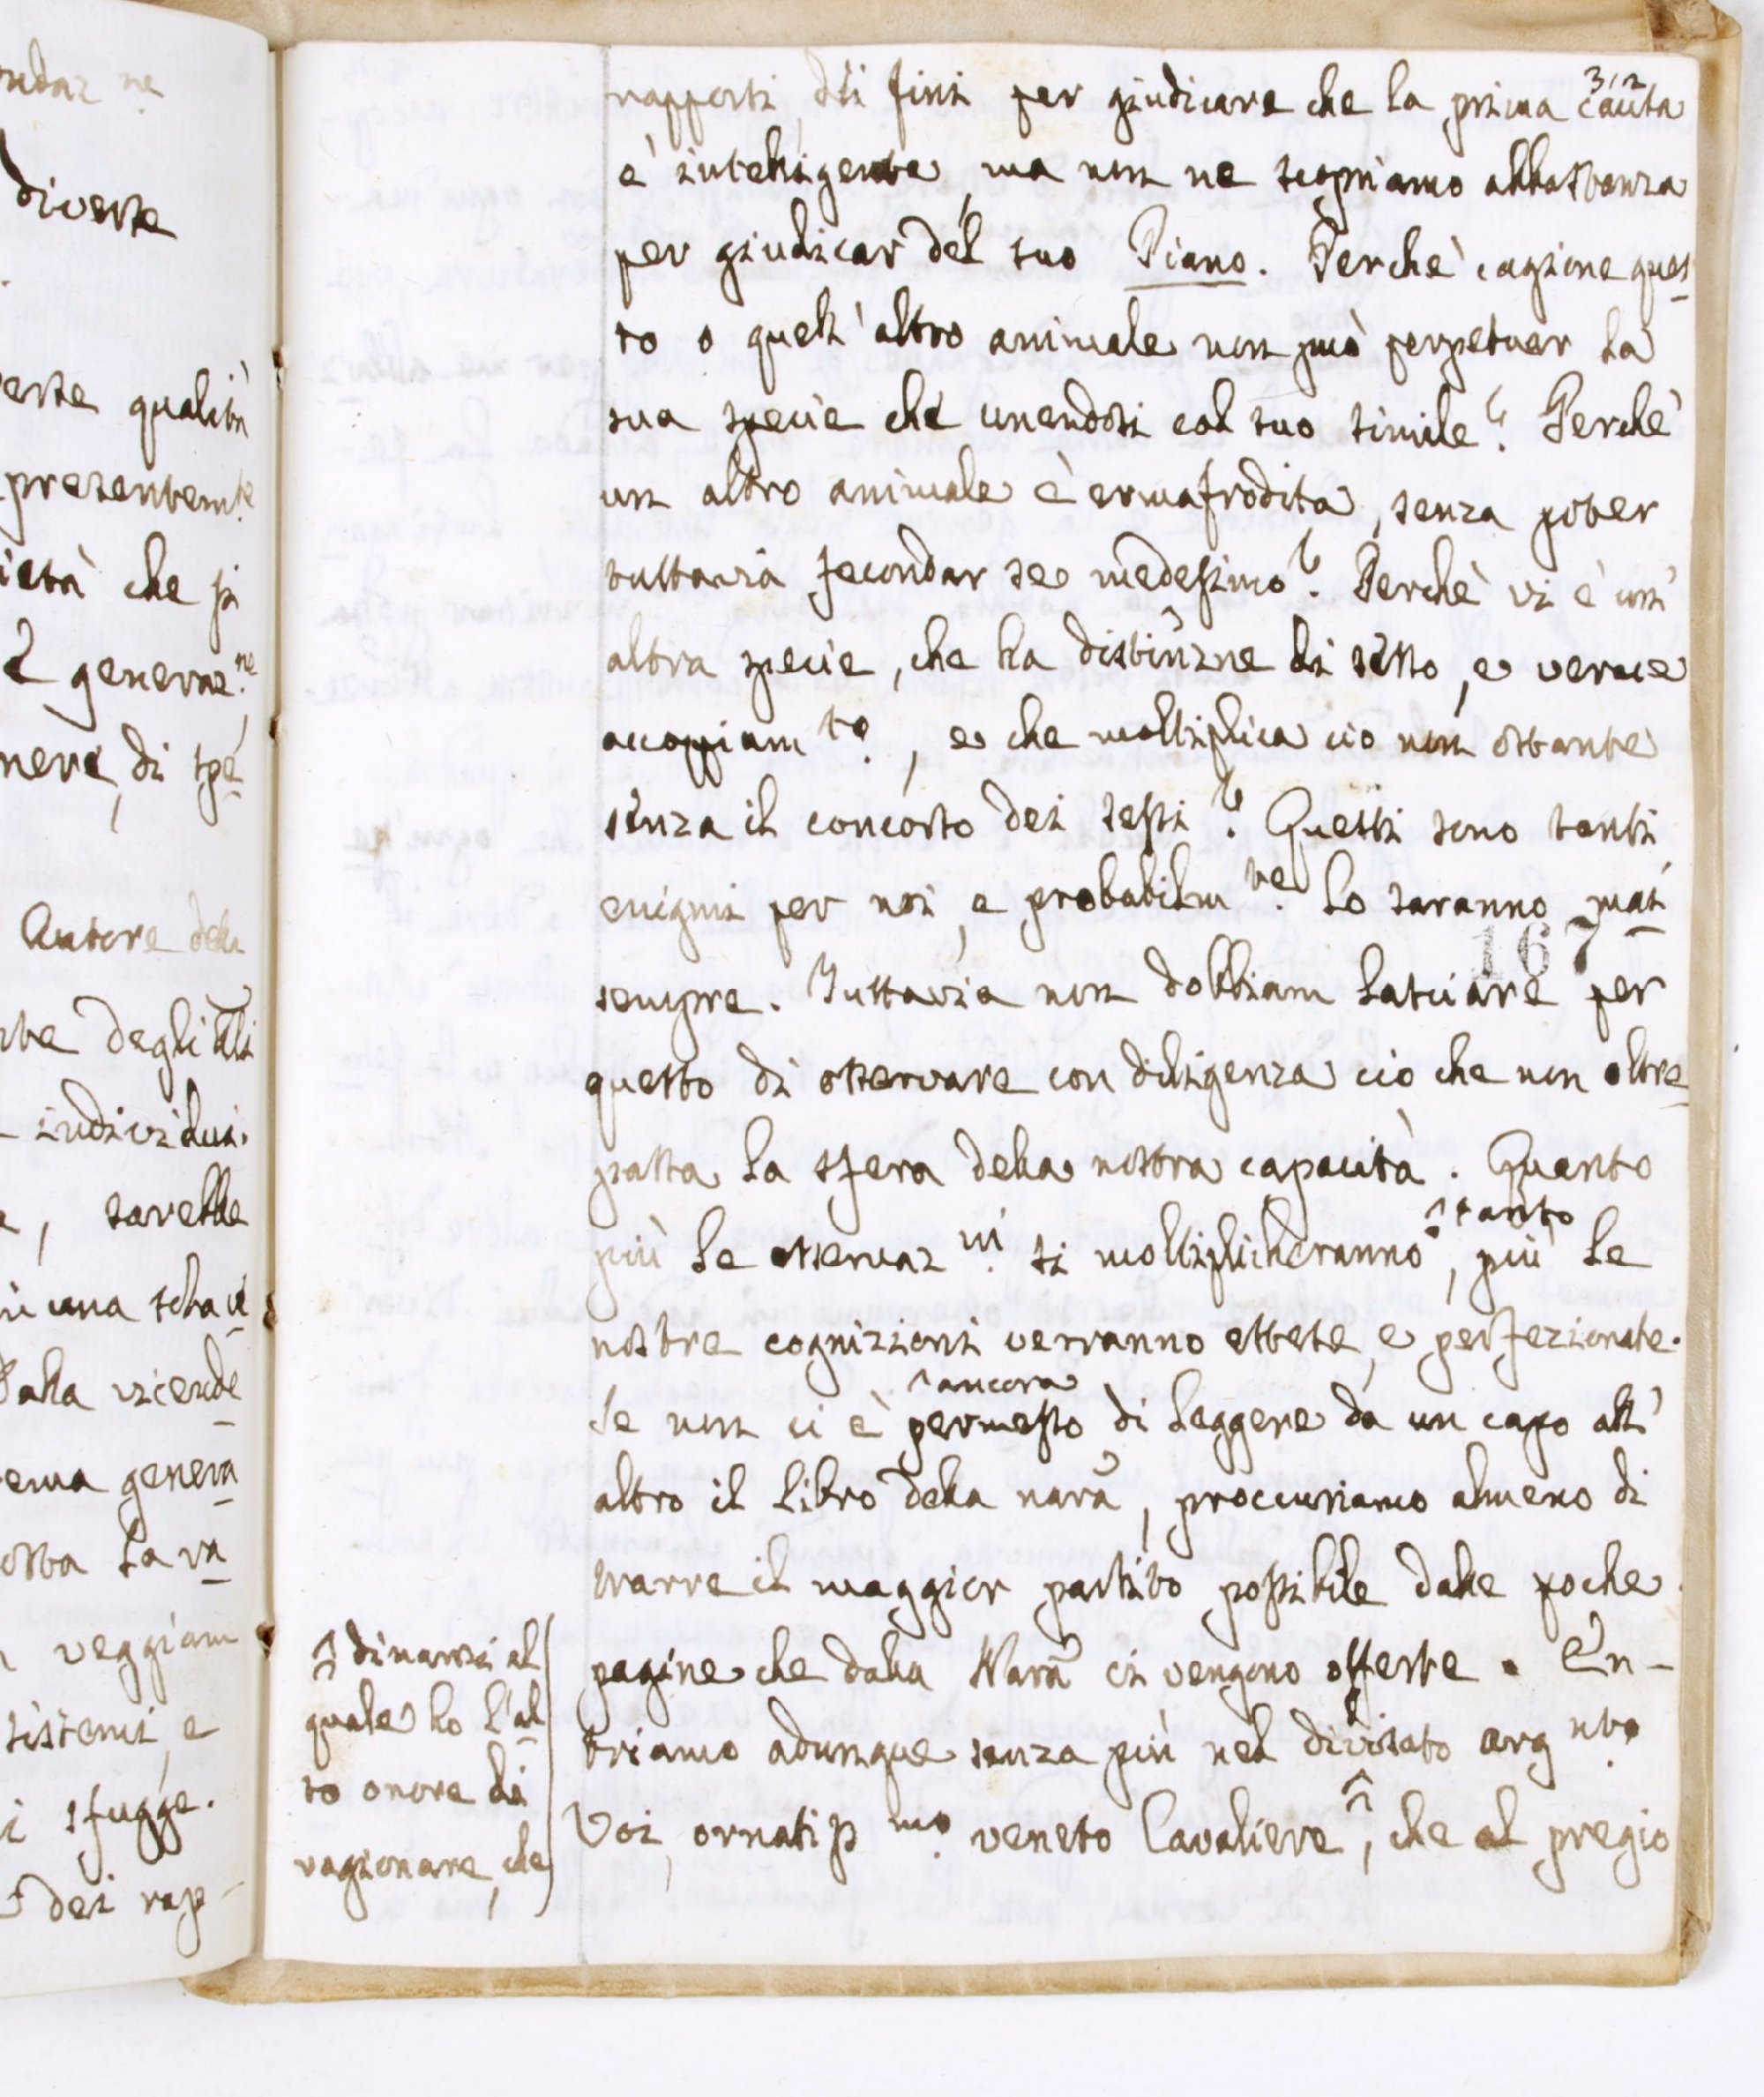 ndaz ne
diverse
erse qualità
presentemte
ietà che si
generaz.ne
nere, di spe
Autore della
degli
individui.
sarebbe
una schavi
dalla vicende
ema genera
osta la va
veggiam
sistemi, e
sfugge.
dei rap-
312
rapporti dei fini per giudicare che la prima causa
è intelligente, ma non ne scopriamo abbastanza
per giudicar del suo Piano. Perchè cagione ques
to o quell'altro animale non può perpetuar la
sua specie che unendosi col suo simile? Perchè
un altro animale è ermafrodita, senza poter
tuttavia fecondar se medesimo? Perchè vi è un'
altra specie, che ha distinzne di sesso, e verace
accoppiamto., e che moltiplica ciò non ostante
senza il concorso dei sessi? Questi sono tanti
enigmi per noi, e probabilmte. lo saranno mai
167
sempre. Tuttavia non dobbiam lasciare per
questo di osservare con diligenza ciò che non oltre
passa la sfera della nostra capacità. Quanto
^ tanto
più le osservazni. si moltiplicheranno ^, più le
nostre cognizioni verranno estese, e perfezionate.
^ ancora
Se non ci è permesso di leggere da un capo all'
altro il libro della narã, procuriamo almeno di
trarre il maggior partito possibile dalle poche
pagine che dalla Narã ci vengono offerte. En-
triamo adunque senza più nel divisato argnto.
Voi, ornatissmo. veneto Cavaliere ^, che al pregio
^ dinanzi al
quale ho l'al
to onore di
ragionare, che